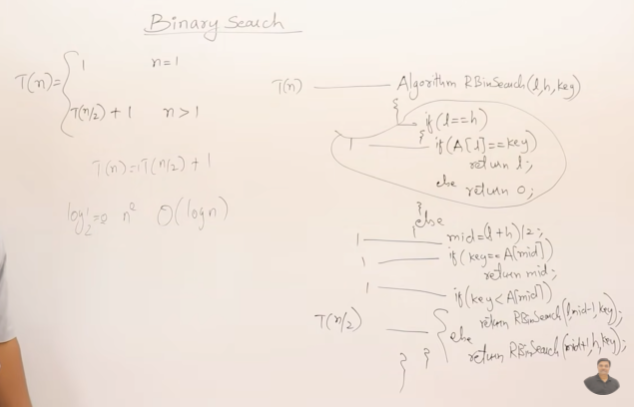 Binary Search
T(n)= { 1 n=1
T(n/2) + 1 n>1
T(n)=1T(n/2) + 1
log₂¹=0 n⁰ O(logn)
T(n) Algorithm RBinSearch(l,h,key)
{
if(l==h)
{
1 if(A[l]==key)
return l;
else return 0;
}
else
{
1 mid=(l+h)/2;
1 if(key==A[mid])
return mid;
1 if(key<A[mid])
T(n/2) return RBinSearch(l,mid-1,key);
else
return RBinSearch(mid+1,h,key);
}
}